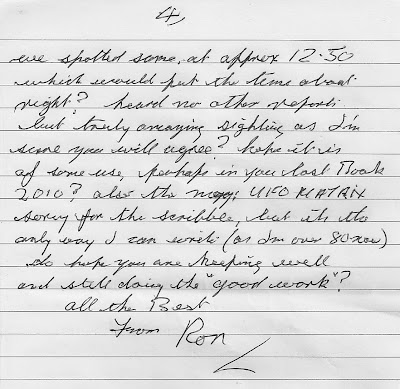 4,
we spotted same, at approx 12.50
which would put the time about
right? heard no other reports
but truly amazing sighting as I'm
sure you will agree? hope it is
of some use, perhaps in you last Book
2010? also the mag; UFO MATRIX
sorry for the scribble, but its the
only way I can write (as I'm over 80 now)
do hope you are keeping well
and still doing the "good work"?
all the Best
From Ron